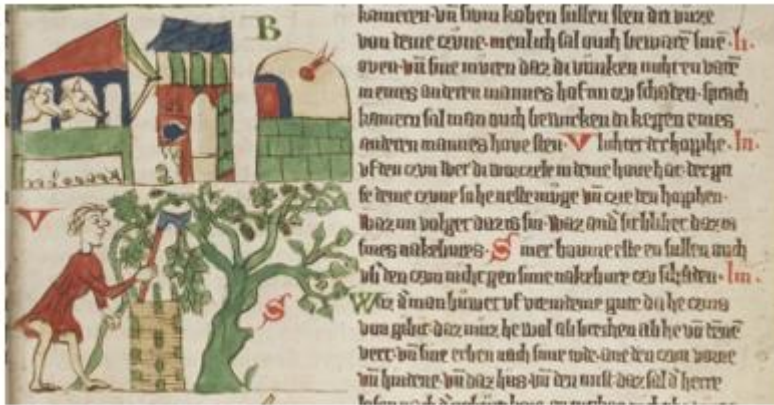 B
kameren· vñ swin koben sullen sten dri vuze
von deme czune· menlich sal ouch bewarē sinē· li·
oven· vñ sine muren daz di vunken nicht en varē
in eines anderen mannes hof im czu schaden· sprach
kamern sal man ouch bewircken di kegen eines
anderen mannes hove sten· V lichtet der hopphe· ln·
uf den czun wer di worczele in deme hove hat· der gri
fe deme czune so he neste muge vñ czie den hopphen·
V
waz im volget daz is sin· waz and' sit blibet daz is
sines nakebures· S iner boume este en sullen ouch
ub' den czun nicht gen sime nakebure czu schaden· lm·
S
Waz d' man buwet uf vremdeme gute da he czins
von gibit· daz muz he wol abbrechen ab he vō dēnē
vert· vñ sine erben nach sime tode· ane den czun vorne
vñ hindene· vñ daz hus vñ den mist· daz sal d' herre